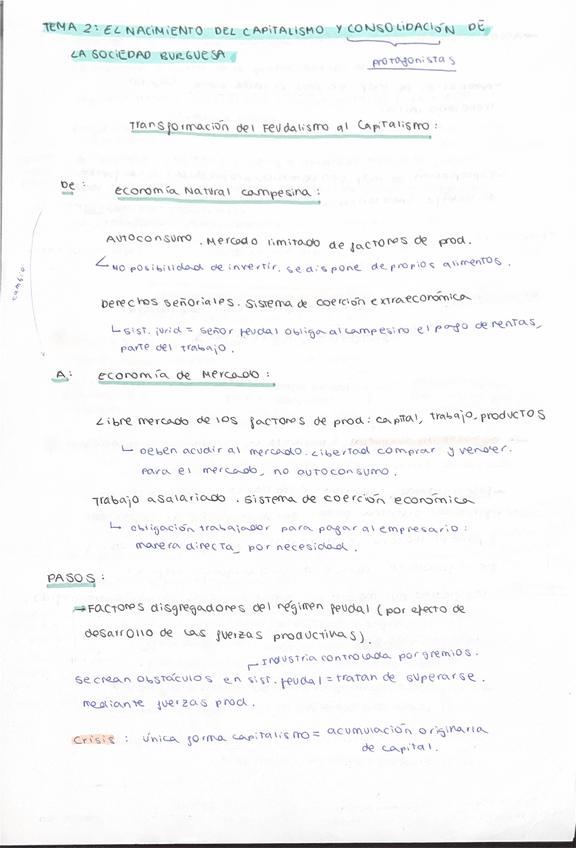 TEMA 2: EL NACIMIENTO DEL CAPITALISMO Y CONSOLIDACIÓN DE
LA SOCIEDAD BURGUESA
protagonistas
Transformación del Feudalismo al Capitalismo:
De:
Economía Natural campesina:
cambio
AUTOCONSUMO. Mercado limitado de factores de prod.
NO posibilidad de invertir. se dispone de propios alimentos.
Derechos señoriales. Sistema de coerción extraeconómica
sist. jurid = señor feudal obliga al campesino el pago de rentas,
parte del trabajo.
A:
Economía de Mercado:
Libre mercado de los factores de prod: capital, trabajo, productos
Deben acudir al mercado. Libertad comprar y vender.
Para el mercado, no autoconsumo.
Trabajo asalariado. Sistema de coerción económica
obligación trabajador para pagar al empresario:
manera directa, por necesidad.
PASOS:
→ Factores disgregadores del régimen feudal (por efecto de
desarrollo de las fuerzas productivas).
Industria controlada por gremios.
se crean obstáculos en sist. feudal = tratan de superarse.
mediante fuerzas prod.
Crisis: única forma capitalismo = acumulación originaria
de capital.